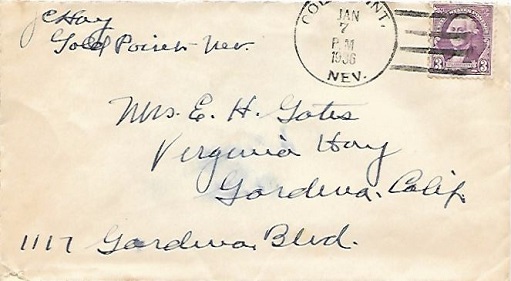 JC Hay
Gold Point Nev.
GOLD POINT,
JAN
7
P.M
1936
NEV.
3 3
Mrs. E. H. Gates
Virginia Hay
Gardena, Calif
1117 Gardena Blvd.